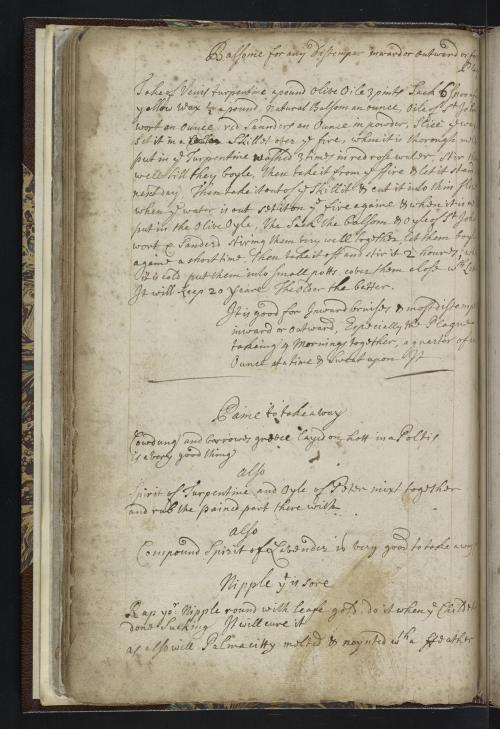 Balsome for any distemper inward or outward
Take Venis turpentine a pound Olive Oile 3 pints Sack 6
yellow wax ½ a pound, Natural Balsom an ounce, Oile of St
wort an Ounce red Sanders an Ounce in powder, Slice ye
set it in a Skillet over ye fire, when it is thorough
put in ye Turpentine washed 3 times in red rose water, stir
well till they boyle, then take it from ye fire & let it
next day. Then take it out of ye Skillit & cut it into thin
when ye water is out set it on ye fire againe & when it is
put in the Olive Oyle, the Sack the balsom & Oyle of St
wort & Sanders stiring them very well together, let them
againe a short time. Then take it off and stir it 2 hours,
it is cold put them into small potts, cover them close wth
It will keep 20 years. The older the better.
It is good for Inward bruises & most
inward or outward, Especially the Plague
takeing 4 Mornings together, a quarter of
Ounce at a time & Sweat upon It
Paine to take away
Cowdung and borrows greece layd on hott in a Poltis
is a very good thing
also
Spirit of Turpentine and Oyle of Peter mixt together
and rub the pained part there with
also
Compound Spirit of Lavender is very good to take away
Nipple yt is sore
Rap yor Nipple round with leafe gold do it when ye Child
done Sucking It will cure it
as also will Palmacitty melted & noynted wth a ffeather